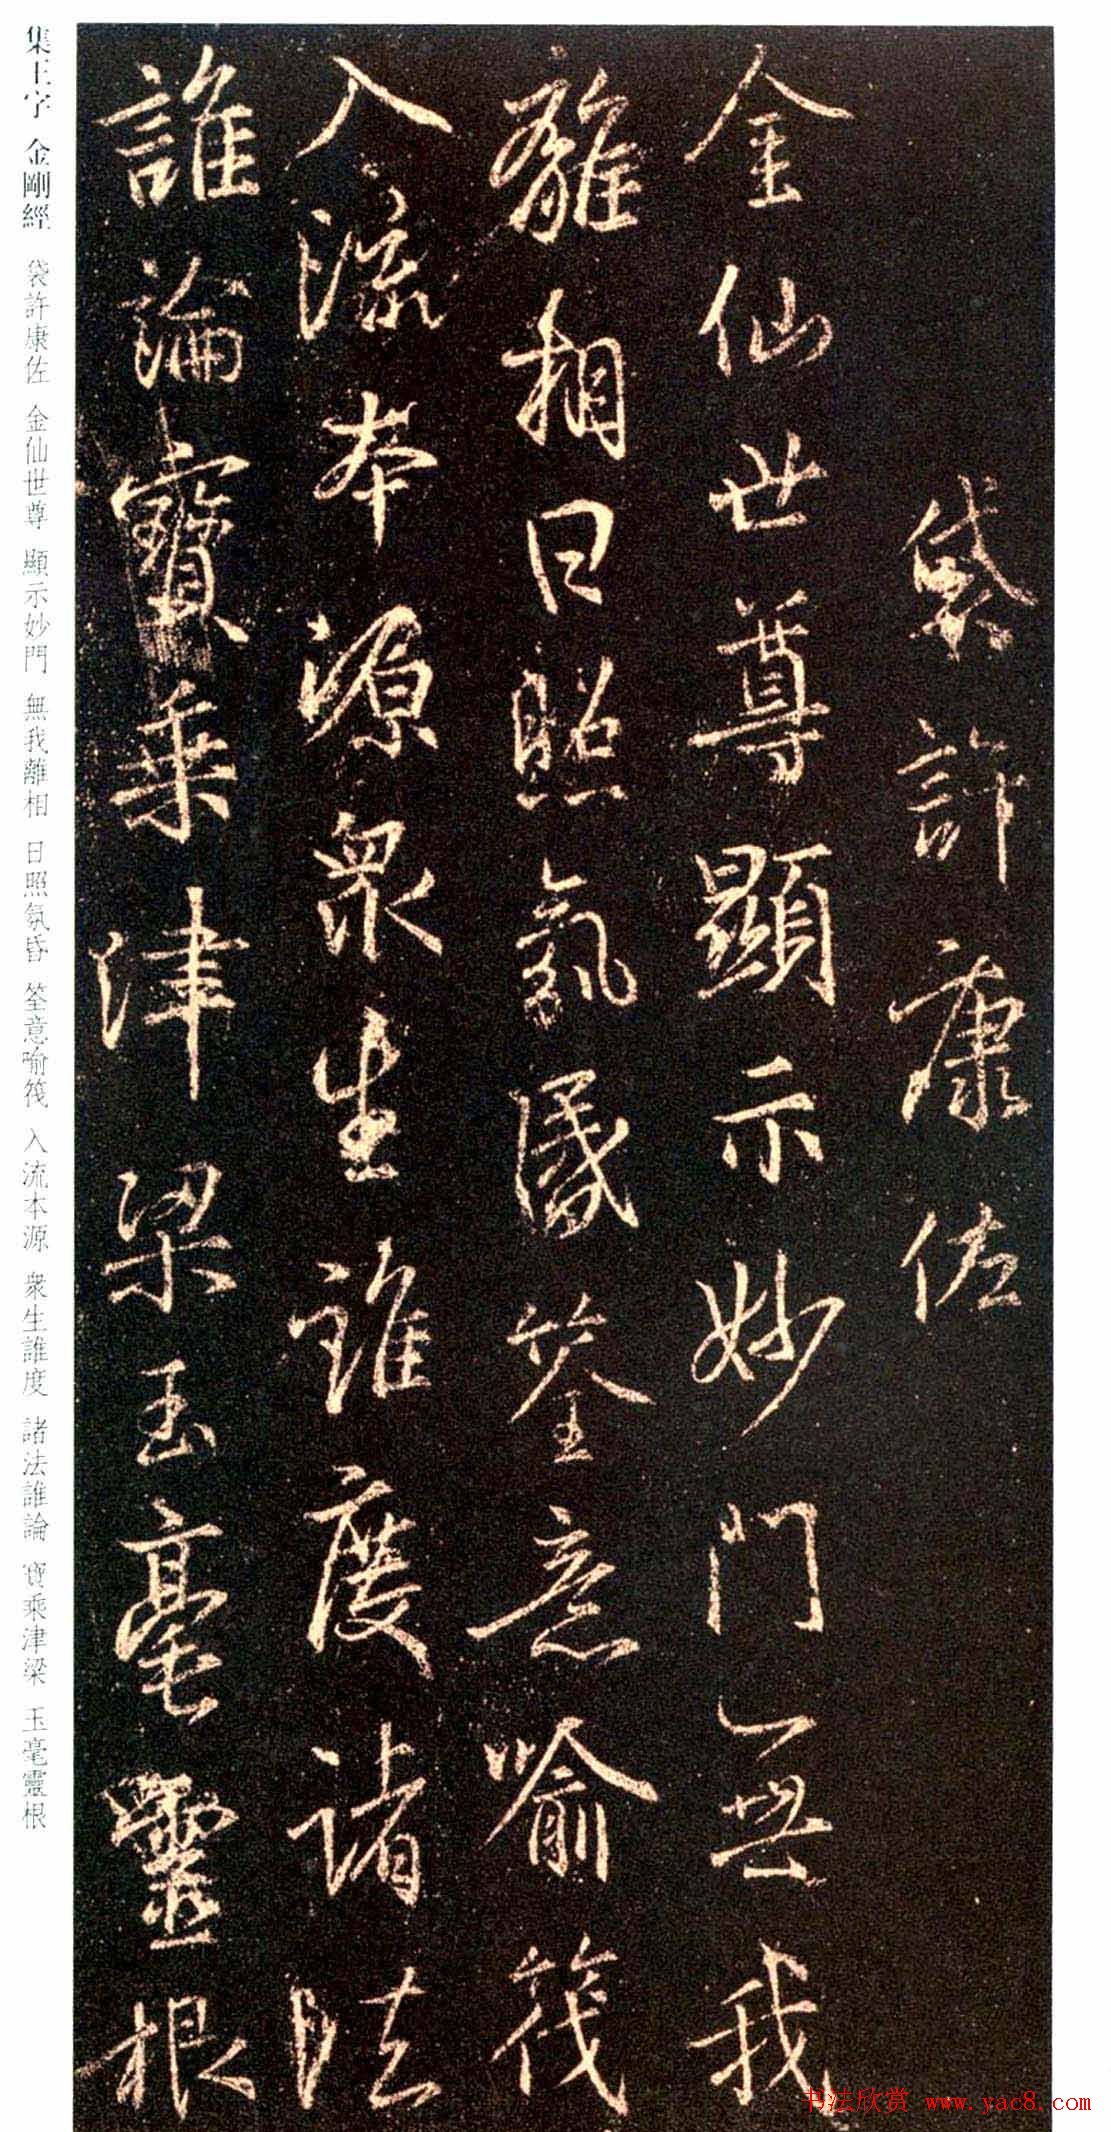 袋許康佐
金仙世尊顯示妙門無我
離相日照氛昏筌意喻筏
入流本源衆生誰度諸法
誰論寶乘津梁玉毫靈根
集王字 金剛經 袋許康佐 金仙世尊 顯示妙門 無我離相 日照氛昏 筌意喻筏 入流本源 衆生誰度 諸法誰論 寶乘津梁 玉毫靈根
书法欣赏 www.yac8.com